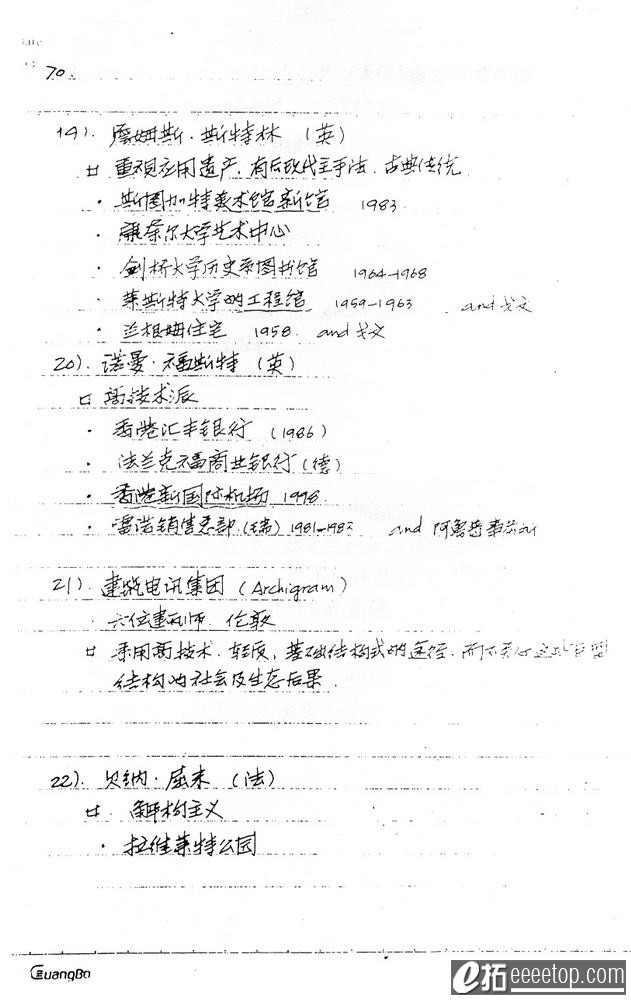 70.
19). 詹姆斯·斯特林 (英)
重视应用遗产. 有后现代主手法. 古典传统
· 斯图加特美术馆新馆 1983
· 康奈尔大学艺术中心
· 剑桥大学历史系图书馆 1964-1968
· 莱斯特大学的工程馆 1959-1963 and 戈文
· 兰根姆住宅 1958. and 戈文
20). 诺曼·福斯特 (英)
高技术派
· 香港汇丰银行 (1986)
· 法兰克福商业银行 (德)
· 香港新国际机场 1998
· 雷诺销售总部 1981-1983 and
21). 建筑电讯集团 (Archigram)
· 六位建筑师. 伦敦
采用高技术. 轻质, 基础结构式的途径. 而不关心这些巨型
结构的社会及生态后果.
22). 贝纳·屈米 (法)
解构主义
· 拉维莱特公园
GuangBo
e拓 eeeetop.com